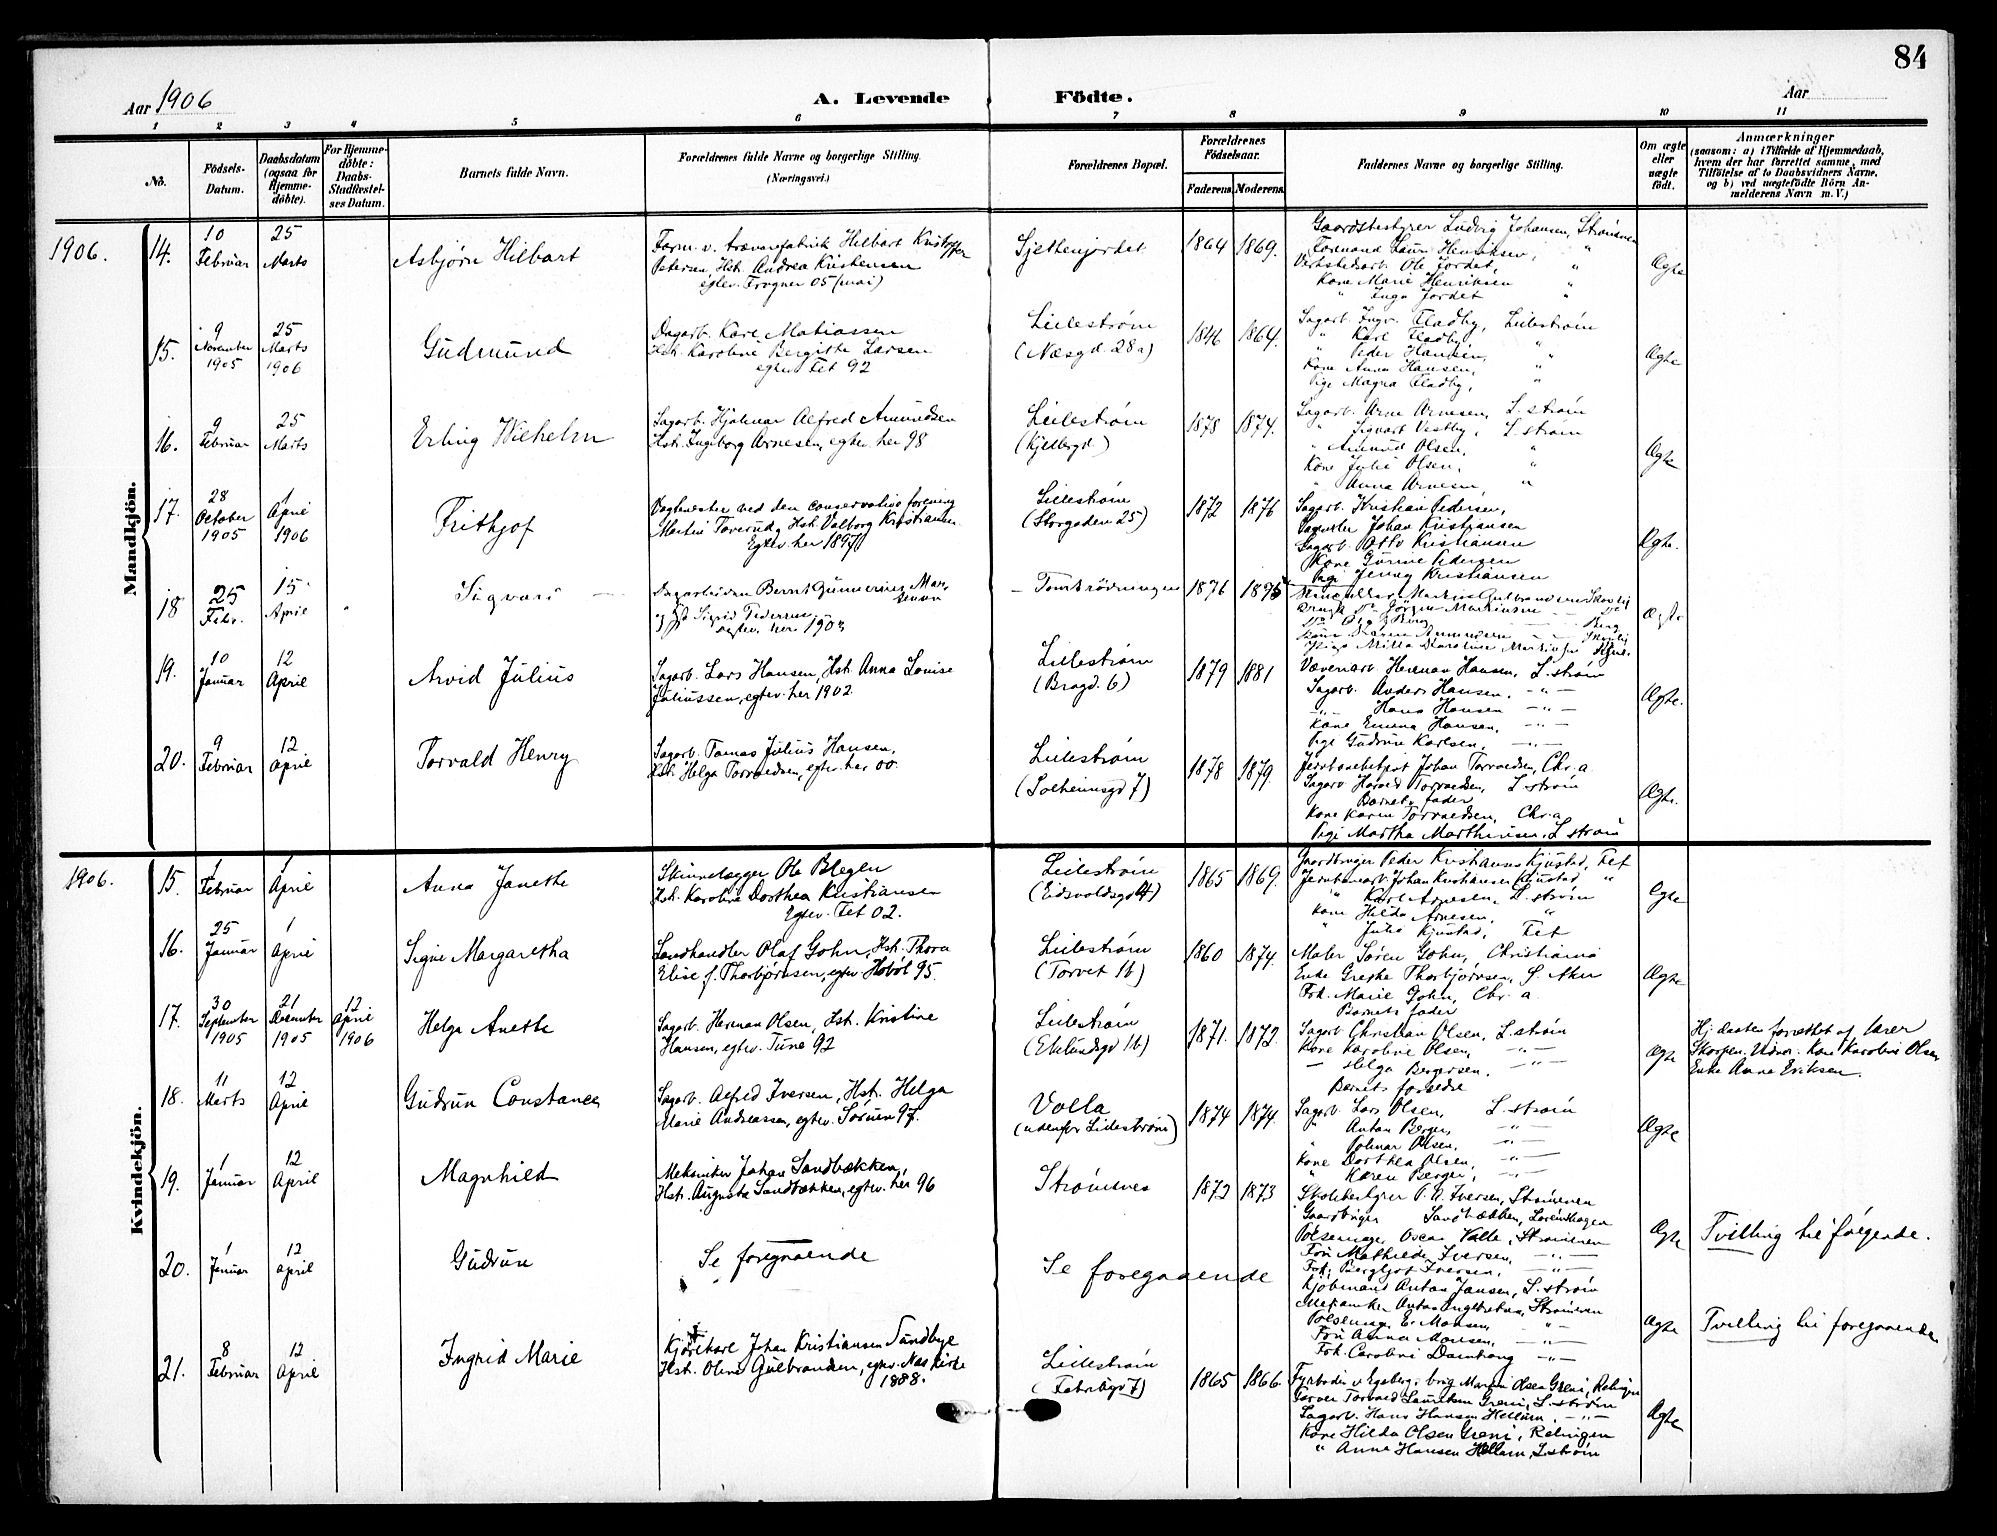 84
Aar 1906
A. Levende Födte.
Aar
1 2 3 4 5 6 7 8 9 10 11
No.
Födsels-Datum.
Daabsdatum (ogsaa for Hjemme-döbte).
For Hjemme-döbte: Daabs-Stadfæstel-ses Datum.
Barnets fulde Navn.
Forældrenes fulde Navne og borgerlige Stilling. (Næringsvei.)
Forældrenes Bopæl.
Forældrenes Födselsaar.
Faderens. Moderens.
Faddernes Navne og borgerlige Stilling.
Om ægte eller uægte födt.
Anmærkninger
(saasom: a) i Tilfælde af Hjemmedaab, hvem der har forrettet samme, med Tilföielse af to Daabsvidners Navne, og b) ved uægtefödte Börn An-melderens Navn m. V.)
Mandkjön.
1906. 14. 10 Februar 25 Marts Asbjørn Hilbart
Form. v. trævarefabrik Hilbart Kristoffer
Petersen, Hst. Andrea Kristensen
egtev. Frogner 05 (mai)
Sjettenjordet 1864 1869.
Gaardsbestyrer Ludvig Johansen, Strømmen
Formand Laur. Henriksen, "
Verkstedsarb. Ole Jordet, "
Kone Marie Henriksen "
" Inga Jordet "
Ægte
15. 9 November 1905 25 Marts 1906 Gudmund
Dagarb. Karl Matiassen
Hst. Karoline Bergitte Larsen
egtev. Fet 92
Lillestrøm (Næsgd. 28a) 1846 1864.
Sagarb. Ingv. Fladby, Lillestrøm
" Karl Fladby "
" Peder Hansen, "
Kone Anna Hansen, "
Pige Magna Fladby, "
Ægte
16. 9 Februar 25 Marts Erling Wilhelm
Sagarb. Hjalmar Alfred Amundsen
Hst. Ingeborg Arnesen, egtev. her 98
Lillestrøm (Kjelbergd.) 1878 1874.
Sagarb. Arne Arnesen, L.strøm
" Sigvart Vestby, L.strøm
" Amund Olsen, "
Kone Julie Olsen, "
" Anna Arnesen "
Ægte
17. 28 October 1905 1 April 1906 Frithjof
Vagtmester ved den conservative forening
Martin Toverud, Hst. Valborg Kristiansen
Egtev. her 1897
Lillestrøm (Storgaden 25) 1872 1876
Sagarb. Kristian Pedersen,
Johan Kristiansen
Sagarb. Otto Kristiansen
Kone Gunine Pedersen
Pige Jenny Kristiansen
Ægte.
18 25 Febr. 15 April Sigvart
Sagarbeider Bernt Gunnerius Martinsen
og Hst Sigrid Pedersen
egtev. her 190
Tomtrødningen 1876 1875
Ægte
19. 10 Januar 12 April Arvid Julius
Sagarb. Lars Hansen, Hst. Anna Louise
Juliussen, egtev. her 1902.
Lillestrøm (Bragd. 6) 1879 1881
Væverarb. Herman Hansen, L.strøm
Sagarb. Anders Hansen. — " —
— " — Hans Hansen — " —
Kone Emma Hansen, — " —
Pige Gudrun Karlsen, — " —
Ægte.
20. 9 Februar 12 April Torvald Henry
Sagarb. Tomas Julius Hansen,
Hst. Helga Torvaldsen, egtev. her 00.
Lillestrøm (Solheimsgd 7) 1878 1879.
Johan Torvaldsen, Chr.a.
Sagarb Harald Torvaldsen, L.strøm
Barnets fader
Kone Karen Torvaldsen, Chr.a
Pige Martha Marthinsen, L.strøm
Ægte.
Kvindekjön.
1906. 15. 1 Februar 1 April Anna Janette
Skinnelægger Ole Blegen
Hst. Karoline Dorthea Kristiansen
Egtev. Fet 02.
Lillestrøm (Eidsvoldsgd 4) 1865 1869.
Gaardbruger Peder Kristiansen Kjustad, Fet
Jernbanearb. Johan Kristiansen Kjustad, "
" Karl Arnesen, L.strøm
Kone Hilda Arnesen, "
" Julie Kjustad, Fet
Egte
16. 25 Januar 1 April Signe Margaretha
Landhandler Olaf Gohn, Hst. Thora
Elise f. Thorbjørnsen, egtev Hobøl 95.
Lillestrøm (Torvet 1b) 1860 1874.
Maler Søren Gohn, Christiania
Enke Grethe Thorbjørnsen, Ø. Aker
Frk. Marie Gohn, Chr.a.
Barnets fader
Ægte
17. 30 September 1905 21 December 1905 12 April 1906 Helga Anette
Sagarb. Herman Olsen, Hst. Kristine
Hansen, egtev. Tune 92
Lillestrøm (Eklundsgd 1b) 1871. 1872.
Sagarb Christian Olsen, L.strøm
Kone Karoline Olsen, — " —
— Helga Bergersen. — " —
Barnets forældre
Ægte
Hj: daaben forrettet af lærer
Skorpen. Vidner: Kone Karoline Olsen
Enke Anne Eriksen.
18. 11 Marts 12 April Gudrun Constance
Sagarb. Alfred Iversen, Hst. Helga
Marie Andreassen, egtev. Sørum 97.
Volla (udenfor Lillestrøm) 1874 1874.
Sagarb. Lars Olsen, L.strøm
" Anton Berger, — " —
" Polmar Olsen, — " —
Kone Dorthea Olsen, — " —
" Karen Berger, — " —
Ægte
19. 1 Januar 12 April Magnhild
Mekaniker Johan Sandbækken,
Hst. Augusta Sandbækken, egtev. her 96
Strømnes 1872 1873
Skolebestyrer P. A. Iversen, Strømmen
Gaardbruger Sandbækken, Lørenskogen
Pølsemager Oscar Valle, Strømmen
Fru Mathilde Iversen, — " —
Frk. Bergljot Iversen, — " —
Ægte Tvilling til følgende.
20. 1 Januar 12 April Gudrun
Se foregaaende
Se foregaaende
Kjøbmand Anton Jansen, L.strøm
Mekaniker Anton Ingebretsen, Strømmen
Pølsemag. E. Monsen, "
Fru Anna Monsen, — " —
Frk. Caroline Damhaug — " —
Ægte Tvilling til foregaaende
21. 8 Februar 12 April Ingrid Marie
Kjørekarl Johan Kristiansen Sundbye
Hst. Oline Gulbrandsen, egtev. Nas Kirke
1888.
Lillestrøm (Fetveigd 7) 1865 1866.
Fyrbøder v. Egeberg. brug Martin Olsen Greni, Rælingen
Farver Torvald Lauritsen Greni, L.strøm
Sagarb. Hans Hansen Hellum, — " —
Kone Hilda Olsen Greni, Relingen
" Anne Hansen Hellum, L.strøm
Ægte